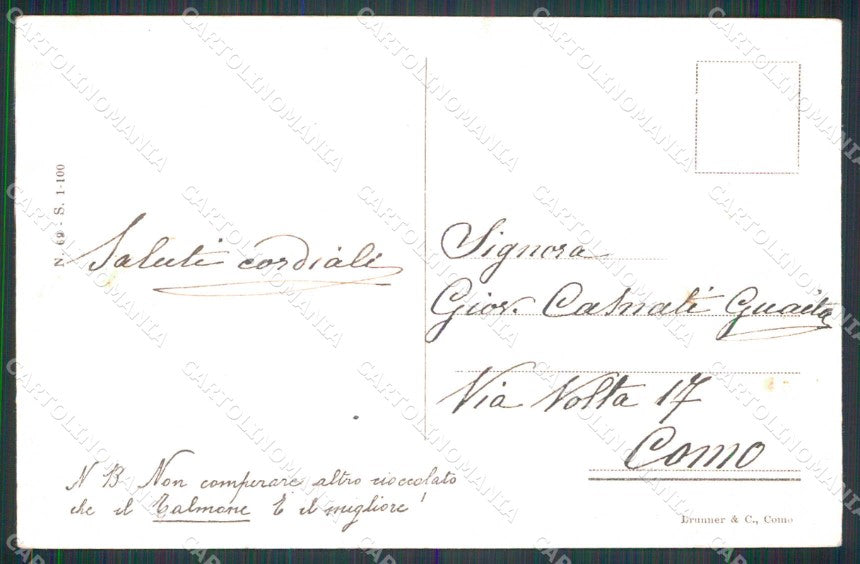 N. 69 - S. 1-100
Saluti cordiali
N B Non comperare altro cioccolato
che il Talmone È il migliore!
Signora
Giov. Casnati Guaita
Via Volta 17
Como
Brunner & C., Como
CARTOLINOMANIA